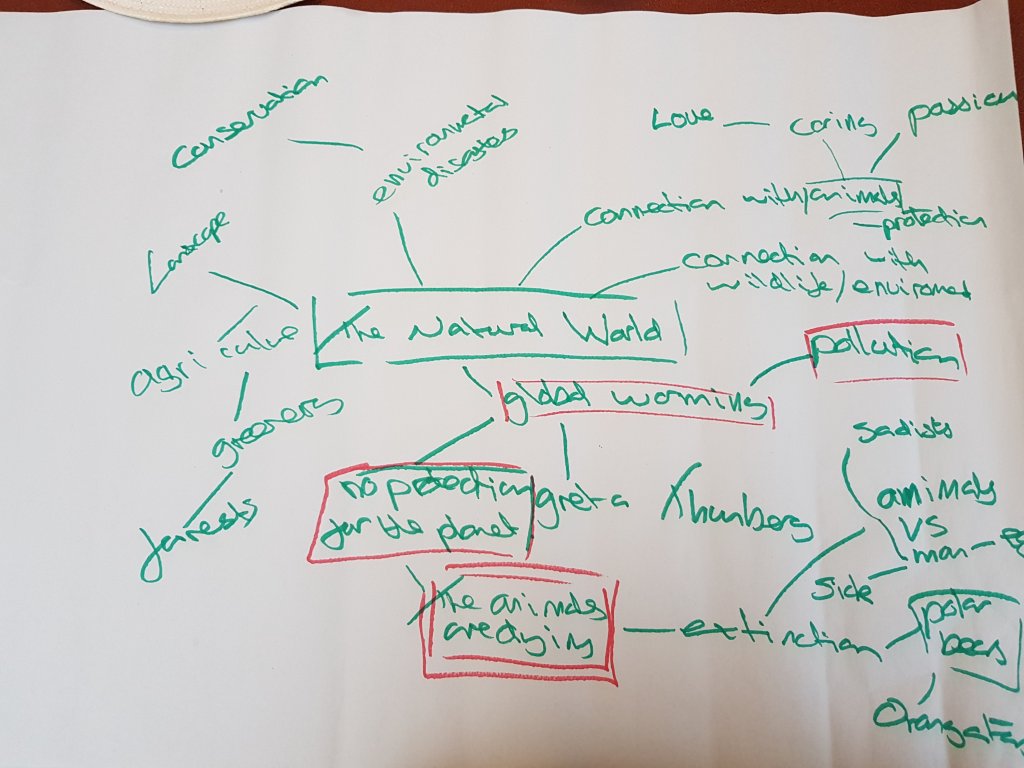 conservation
environmetal
disastes
Love
caring
passion
connection with/animals
protection
connection with
wildlife/enviromet
Lanscape
The Natural World
agriculue
pollution
global worming
greenery
sadists
no potection
for the planet
greta Thunberg
animals
VS
man
forests
side
The animals
are dying
extinction
polar
bears